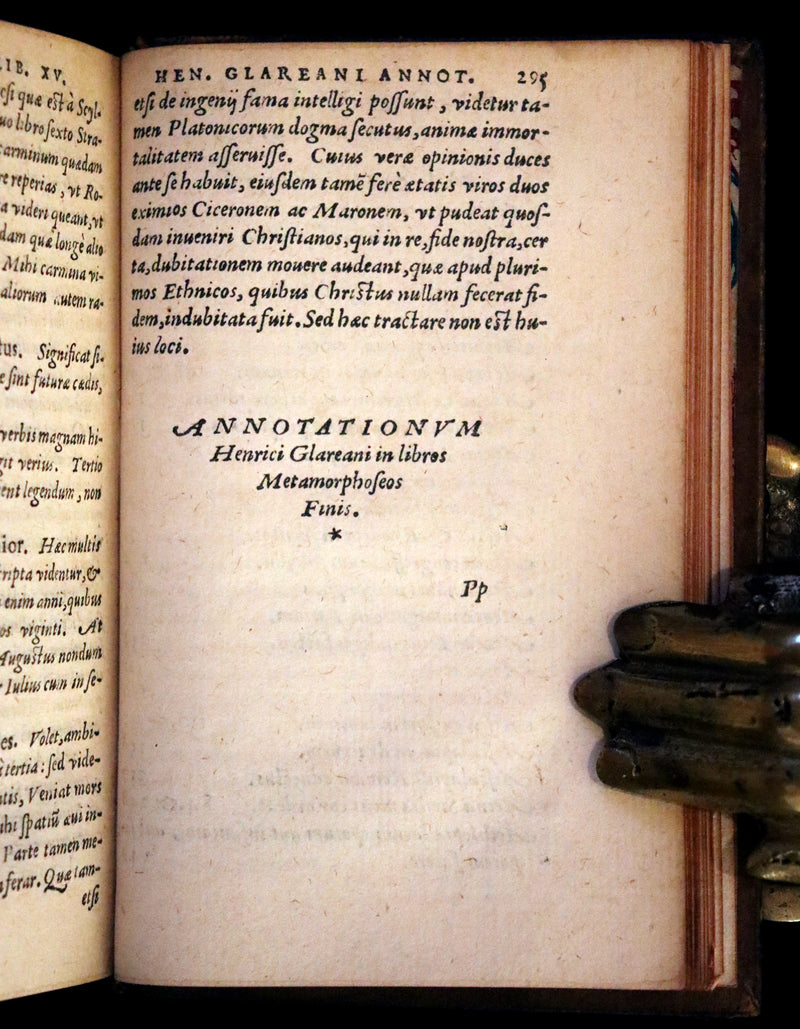 IB. XV.
esi quæ est à Scyl-
uo libro sexto Stra-
carminum quædam
re reperias, vt Ro-
a videri queant, vt
dam quæ longè alio
Mihi carmina vi-
aliorum autem ra-
tus. Significat si-
e sint futuræ cædis,
verbis magnam hi-
git verius. Tertio
ent legendum, non
ior. Hæc multis
ripta videntur, &
enim anni, quibus
os viginti. At
Augustus nondum
Iulius cum in se-
es. Volet, ambi-
tertia: sed vide-
tis, Veniat mors
ibi spatiũ æui in-
Parte tamen me-
ferar. Quæ tam-
etsi
HEN. GLAREANI ANNOT. 295
etsi de ingenij fama intelligi possunt, videtur ta-
men Platonicorum dogma secutus, animæ immor-
talitatem asseruisse. Cuius veræ opinionis duces
ante se habuit, eiusdem tamẽ ferè ætatis viros duos
eximios Ciceronem ac Maronem, vt pudeat quos-
dam inueniri Christianos, qui in re, fide nostra, cer
ta, dubitationem mouere audeant, quæ apud pluri-
mos Ethnicos, quibus Christus nullam fecerat fi-
dem, indubitata fuit. Sed hæc tractare non est hu-
ius loci.
ANNOTATIONVM
Henrici Glareani in libros
Metamorphoseos
Finis.
*
Pp